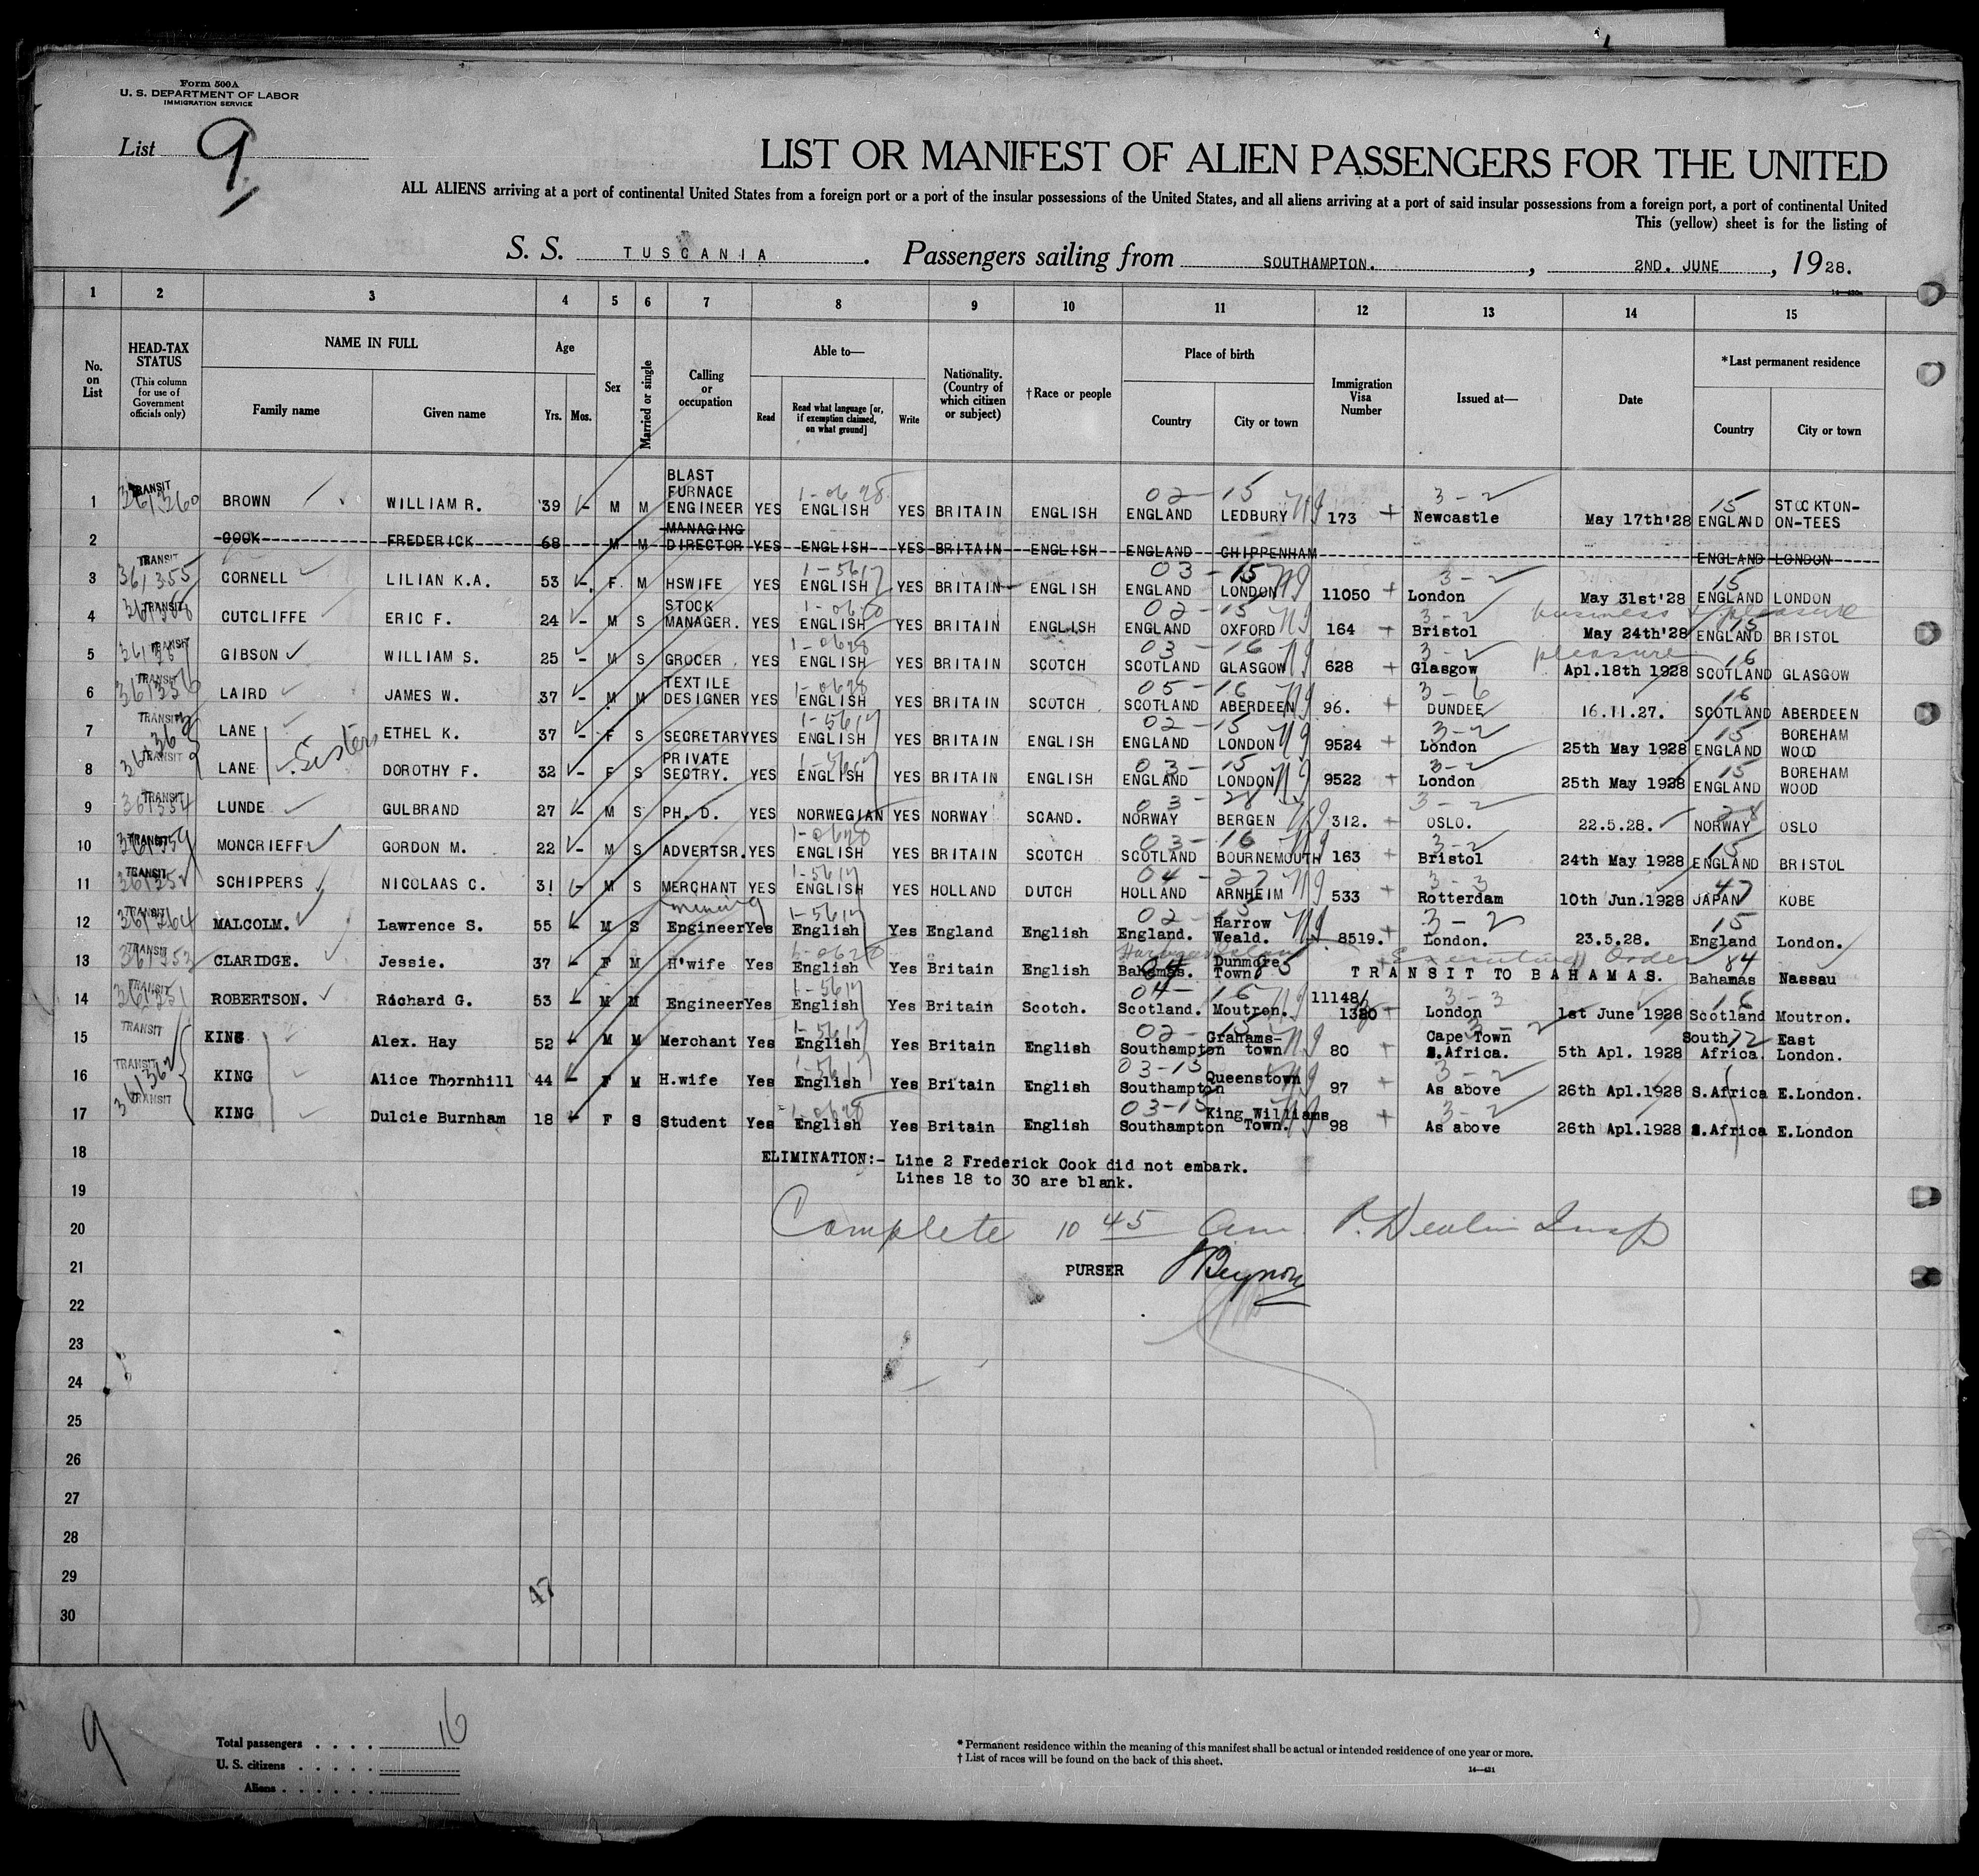 Form 500A
U. S. DEPARTMENT OF LABOR
IMMIGRATION SERVICE
List 9
LIST OR MANIFEST OF ALIEN PASSENGERS FOR THE UNITED
ALL ALIENS arriving at a port of continental United States from a foreign port or a port of the insular possessions of the United States, and all aliens arriving at a port of said insular possessions from a foreign port, a port of continental United
This (yellow) sheet is for the listing of
S. S. TUSCANIA. Passengers sailing from SOUTHAMPTON., 2ND. JUNE, 1928.
1 2 3 4 5 6 7 8 9 10 11 12 13 14 15
No. on List
HEAD-TAX STATUS (This column for use of Government officials only)
NAME IN FULL
Family name
Given name
Age
Yrs. Mos.
Sex
Married or single
Calling or occupation
Able to—
Read
Read what language [or, if exemption claimed, on what ground]
Write
Nationality. (Country of which citizen or subject)
†Race or people
Place of birth
Country
City or town
Immigration Visa Number
Issued at—
Date
*Last permanent residence
Country
City or town
1 TRANSIT 361360 BROWN WILLIAM R. 39 - M M BLAST FURNACE ENGINEER YES ENGLISH YES BRITAIN ENGLISH ENGLAND LEDBURY 173 Newcastle May 17th'28 ENGLAND STOCKTON-ON-TEES
2 COOK FREDERICK 68 M M MANAGING DIRECTOR YES ENGLISH YES BRITAIN ENGLISH ENGLAND CHIPPENHAM ENGLAND LONDON
3 TRANSIT 361355 CORNELL LILIAN K.A. 53 - F M HSWIFE YES ENGLISH YES BRITAIN ENGLISH ENGLAND LONDON 11050 London May 31st'28 ENGLAND LONDON
business & pleasure
4 TRANSIT CUTCLIFFE ERIC F. 24 - M S STOCK MANAGER. YES ENGLISH YES BRITAIN ENGLISH ENGLAND OXFORD 164 Bristol May 24th'28 ENGLAND BRISTOL
pleasure
5 TRANSIT GIBSON WILLIAM S. 25 - M S GROCER YES ENGLISH YES BRITAIN SCOTCH SCOTLAND GLASGOW 628 Glasgow Apl.18th 1928 SCOTLAND GLASGOW
6 TRANSIT 361356 LAIRD JAMES W. 37 - M M TEXTILE DESIGNER YES ENGLISH YES BRITAIN SCOTCH SCOTLAND ABERDEEN 96. DUNDEE 16.11.27. SCOTLAND ABERDEEN
7 TRANSIT LANE ETHEL K. 37 - F S SECRETARY YES ENGLISH YES BRITAIN ENGLISH ENGLAND LONDON 9524 London 25th May 1928 ENGLAND BOREHAM WOOD
Sisters
8 TRANSIT LANE DOROTHY F. 32 - F S PRIVATE SECTRY. YES ENGLISH YES BRITAIN ENGLISH ENGLAND LONDON 9522 London 25th May 1928 ENGLAND BOREHAM WOOD
9 TRANSIT 361354 LUNDE GULBRAND 27 - M S PH. D. YES NORWEGIAN YES NORWAY SCAND. NORWAY BERGEN 312. OSLO. 22.5.28. NORWAY OSLO
10 TRANSIT 361359 MONCRIEFF GORDON M. 22 - M S ADVERTSR. YES ENGLISH YES BRITAIN SCOTCH SCOTLAND BOURNEMOUTH 163 Bristol 24th May 1928 ENGLAND BRISTOL
11 TRANSIT SCHIPPERS NICOLAAS C. 31 - M S MERCHANT YES ENGLISH YES HOLLAND DUTCH HOLLAND ARNHEIM 533 Rotterdam 10th Jun.1928 JAPAN KOBE
12 TRANSIT MALCOLM. Lawrence S. 55 - M S mining Engineer Yes English Yes England English England. Harrow Weald. 8519. London. 23.5.28. England London.
Executive Order
13 TRANSIT 361353 CLARIDGE. Jessie. 37 - F M H'wife Yes English Yes Britain English Bahamas. Dunmore Town TRANSIT TO BAHAMAS. Bahamas Nassau
14 TRANSIT ROBERTSON. Richard G. 53 - M M Engineer Yes English Yes Britain Scotch. Scotland. Moutron. 11148/1320 London 1st June 1928 Scotland Moutron.
15 TRANSIT KING Alex. Hay 52 - M M Merchant Yes English Yes Britain English Southampton Grahams-town 80 Cape Town S.Africa. 5th Apl. 1928 South Africa East London.
16 TRANSIT 361362 KING Alice Thornhill 44 - F M H.wife Yes English Yes Britain English Southampton Queenstown 97 As above 26th Apl.1928 S.Africa E.London.
17 TRANSIT KING Dulcie Burnham 18 - F S Student Yes English Yes Britain English Southampton King Williams Town. 98 As above 26th Apl.1928 S.Africa E.London
18 ELIMINATION:- Line 2 Frederick Cook did not embark.
Lines 18 to 30 are blank.
19
20 Complete 10 45 am.
21 PURSER
22
23
24
25
26
27
28
29
30
47
9
Total passengers . . . . 16
U. S. citizens . . . . .
Aliens . . . . . .
* Permanent residence within the meaning of this manifest shall be actual or intended residence of one year or more.
† List of races will be found on the back of this sheet.
14—431